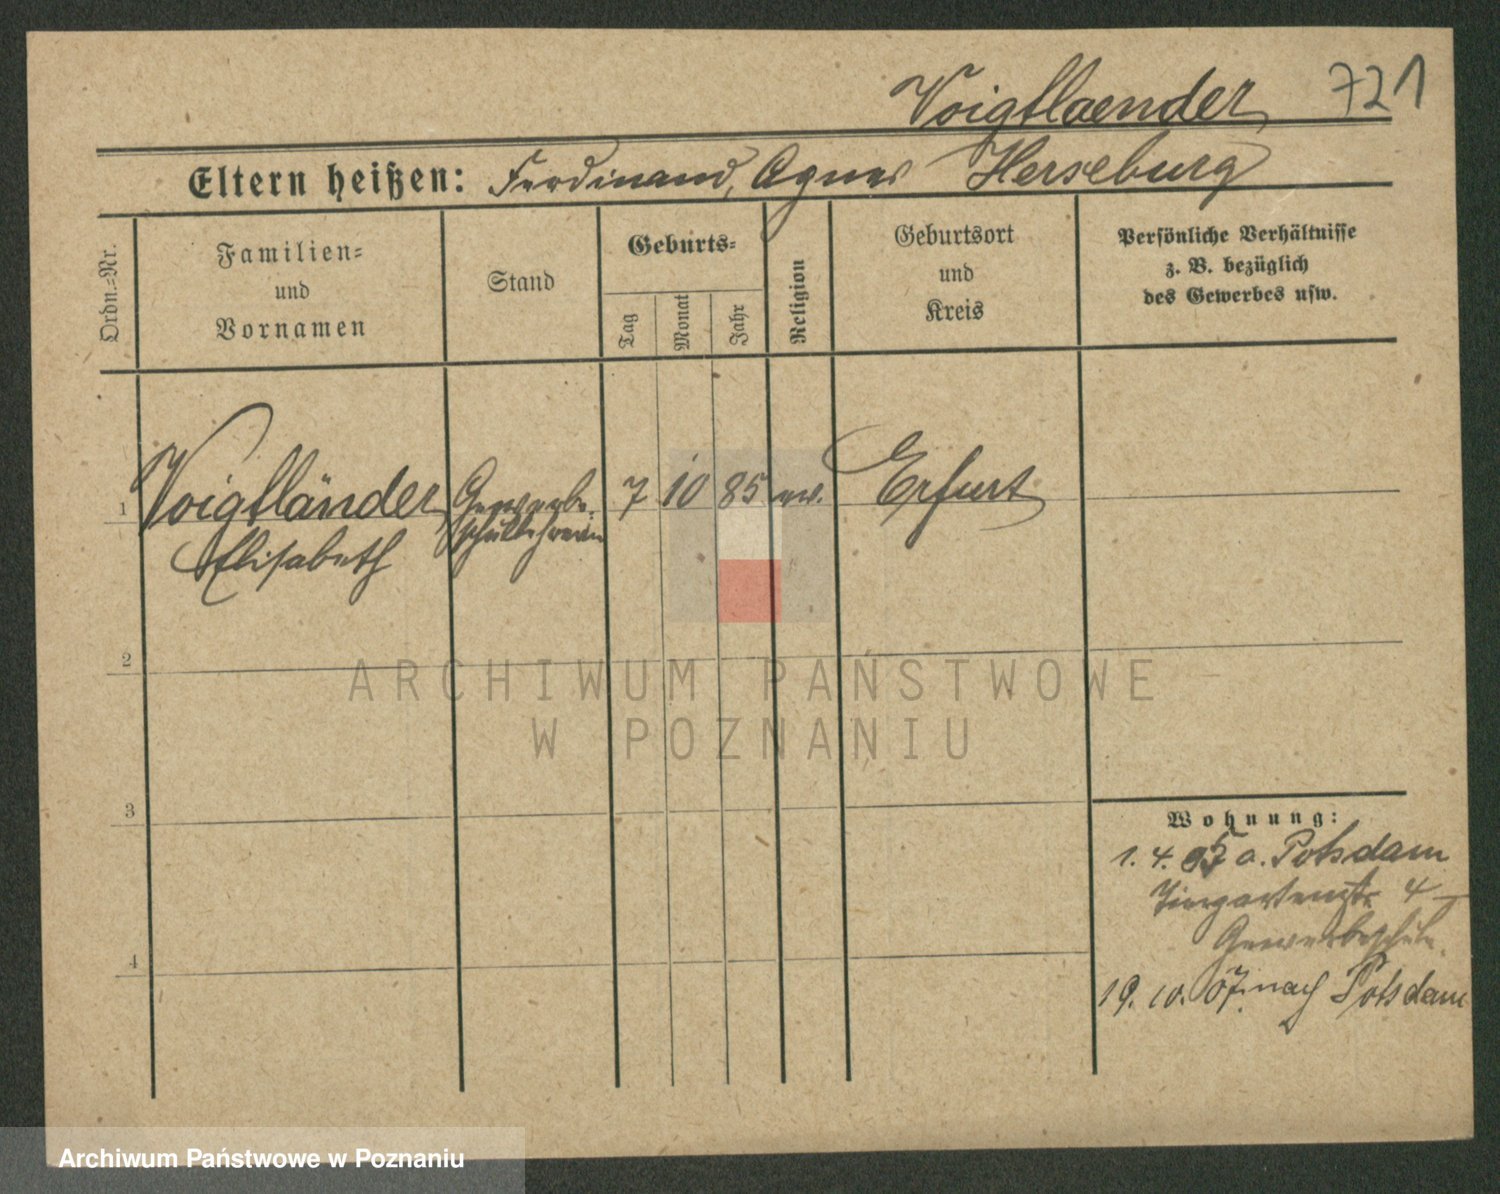 Voigtlaender 721
Eltern heißen: Ferdinand, Agnes Herseburg
Ordn.=Nr.
Familien=
und
Vornamen
Stand
Geburts=
Tag
Monat
Jahr
Religion
Geburtsort
und
Kreis
Persönliche Verhältnisse
z. B. bezüglich
des Gewerbes usw.
1 Voigtländer Gewerbe- 7 10 85 ev. Erfurt
Elisabeth schullehrerin
2
ARCHIWUM PAŃSTWOWE
W POZNANIU
3
Wohnung:
1. 4. a. Potsdam
Tiergartenstr. 4
Gewerbeschule
4
19. 10. 07. nach Potsdam
Archiwum Państwowe w Poznaniu